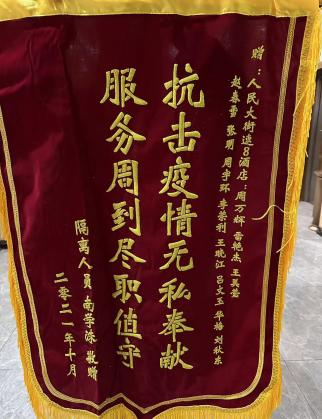 赠：人民大街速8酒店：周万辉 雷艳杰 王美营
赵春雷 张明 周宇环 李荣利 王晓江 吕文玉 华梅 刘秋东
抗击疫情无私奉献
服务周到尽职值守
隔离人员 南学洙 敬赠
二零二一年十月